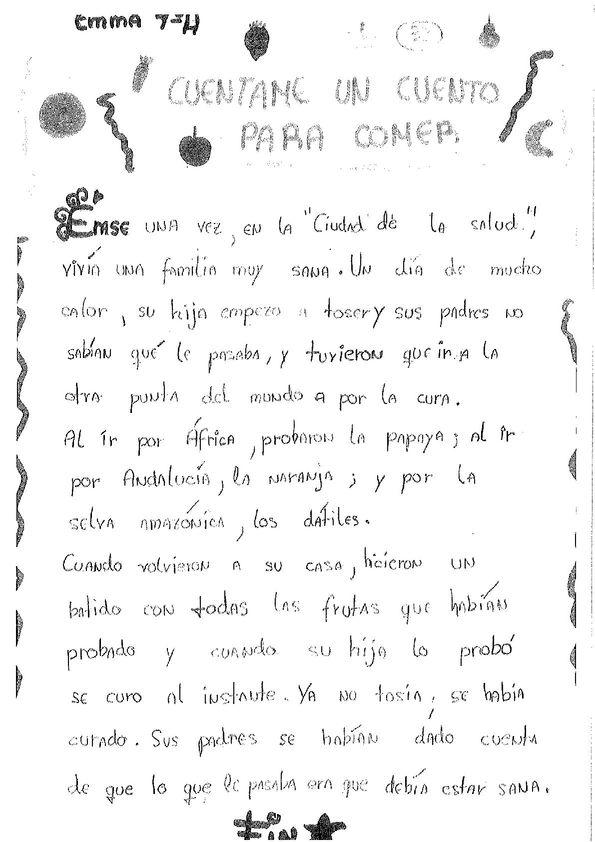 EMMA 7-H
CUENTAME UN CUENTO
PARA COMER.
Erase UNA VEZ, EN LA "Ciudad de la salud",
vivía UNA familia muy SANA. UN día de mucho
calor, su hija empezo a toser y sus padres no
sabían qué le pasaba, y tuvieron que ir a la
otra punta del mundo a por la cura.
Al ir por África, probaron la papaya; al ir
por Andalucía, la naranja; y por la
selva amazónica, los dátiles.
Cuando volvieron a su casa, hicieron un
batido con todas las frutas que habían
probado y cuando su hija lo probó
se curo al instante. Ya no tosía, se había
curado. Sus padres se habían dado cuenta
de que lo que le pasaba era que debía estar SANA.
Fin